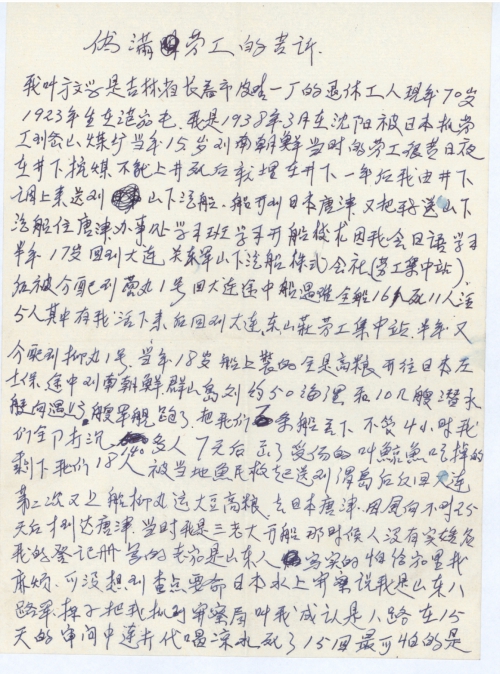 伪满劳工的苦诉
我叫于文学是吉林省长春市皮革一厂的退休工人现年70岁
1923年生在范家屯.我是1938年3月在沈阳被日本抓劳
工到釜山煤矿当年15岁到南朝鲜当时的劳工很苦日夜
在井下挖煤不能上井死后就埋在井下一年后我由井下
调上来送到山下汽船.船开到日本唐津.又把我送山下
汽船住唐津办事处学习班学习开船技术因我会日语学习
半年17岁回到大连关东军山下汽船株式会社(劳工集中站)
后被分配到 丸1号回大连途中船遇难全船16人死11人活
5人其中有我活下来后回到大连.东山莊劳工集中站.半年又
分配到柳丸1号.当年18岁船上装的全是高粮开往日本左
士保.途中到南朝鲜群山岛到约50海浬和10几艘潜水
艇向遇 艘军舰跑了.把我们 条船丢下不管4小时我
们全打沉 140多人 7天后正了受伤的叫鲸鱼吃掉的
剩下我们18人被当地鱼民救起送到 岛后反回大连
第二次又上船柳丸运大豆高粮.去日本唐津.因风向不对25
天后才到达唐津.当时我是三老大万船那时候人没有家 危
我的登记册 写的老家是山东人 写实的怕给家里找
麻烦.可没想到查点要命日本水上警察说我是山东八
路军.探子把我抓到警察局叫我成认是八路在15
天的审问中连打代喝凉水死了15回最可怕的是